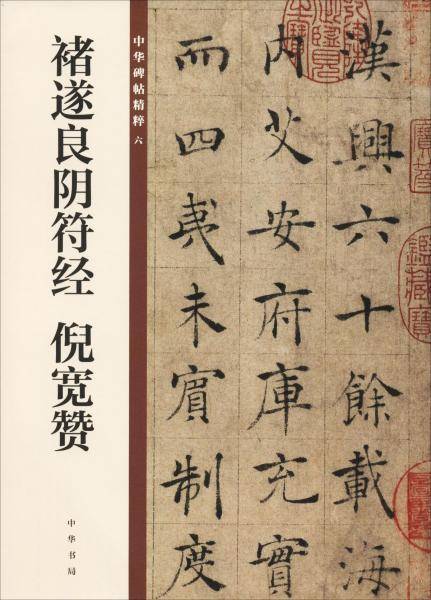 褚遂良阴符经 倪宽赞
中华书局
中华碑帖精粹 六
漢興六十餘載海
内艾安府庫充實
而四夷未賓制度